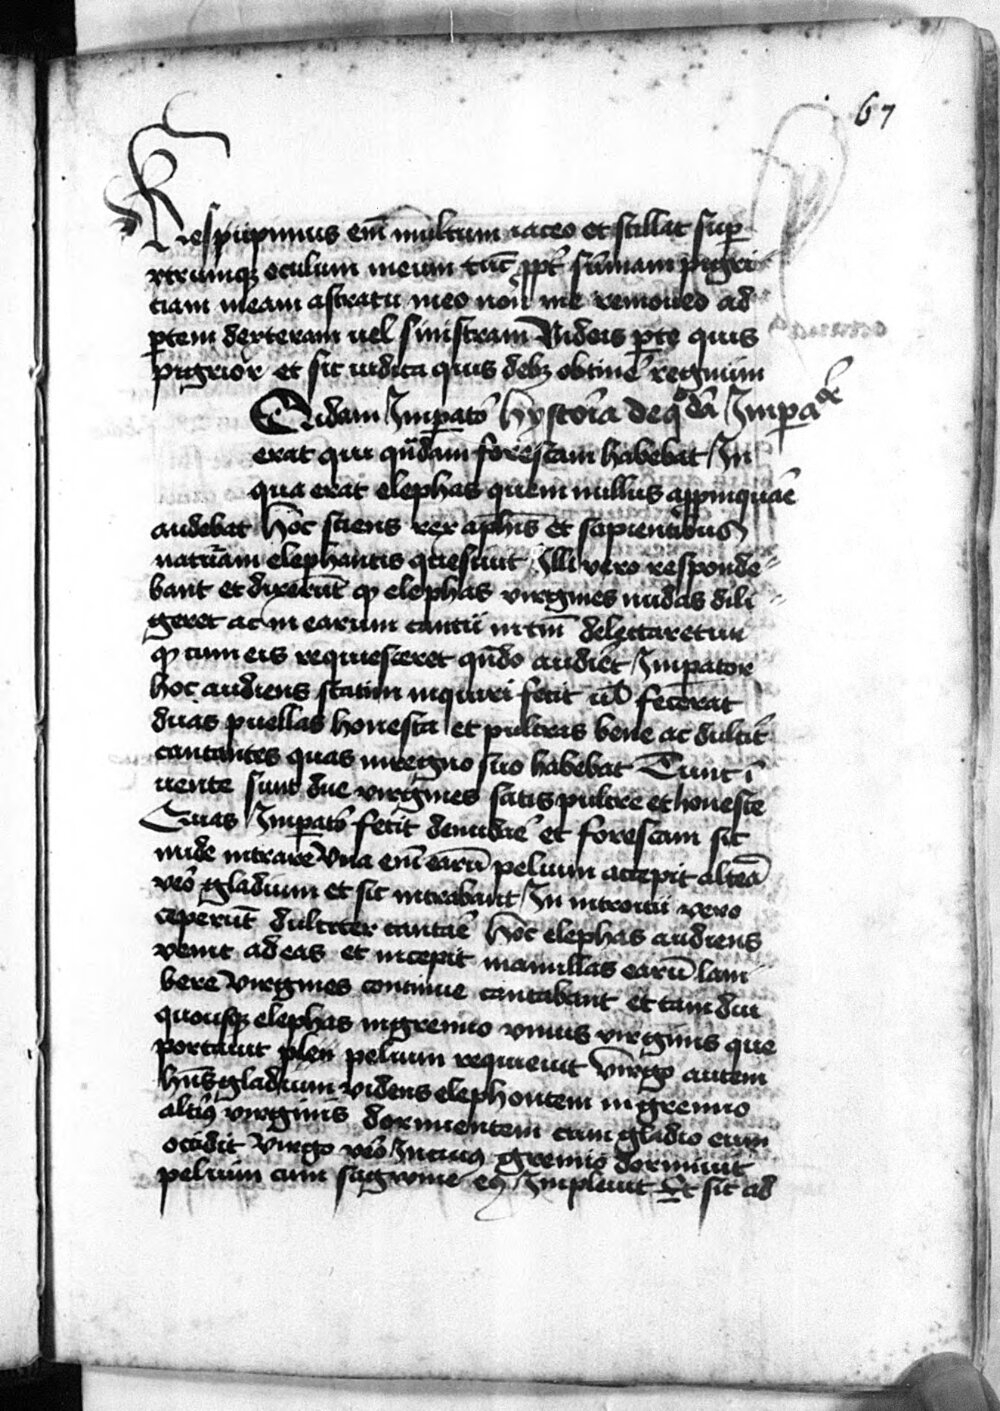 67
Respupinus em̄ multum iaceo et stillat sup̄
vtrumqȝ oculum meum tūc ꝓpt̄ sūmam pigri
ciam meam astratu meo non me remoueo ad
ꝑtem dexteram uel sinistram Videis ꝑte quis
pigrior et sic iudica quis debȝ obtinē regnum
Quidam Imꝑatoꝛ hystoria de qͦdā Impaꝛͤ
erat qui quādam forestam habebat In
qua erat elephas quem nullus appīnquaē
audebat hoc sciens rex aphīs et sapientibus
naturam elephantis quesiuit Illi vero responde
bant et dixerūt ꝙ elephas virgines nudas dili
geret ac in earum cantū in tm̄ delectaretur
ꝙ cum eis requiesceret qn̄do audiret Imperator
hoc audiens statim inquiri fecit
duas puellas honestas et pulcras bene ac dulcit̄
cantantes quas in regno suo habebat Tunc ī
uente sunt due virgines satis pulcre et honeste
Quas Imꝑatoꝛ fecit denudaē et forestam sic
nude intrare Vna em̄ earū peluim accepit altēa
veō gladium et sic intrabant In introitu vero
ceperūt dulciter cantaē hoc elephas audiens
venit ad eas et incepit mamillas earū lam
bere Virgines continue cantabant et tam diu
quousqȝ elephas in gremio vnius virginis que
portauit peluim requieuit Virgo autem
hn̄s gladium videns elephontem in gremio
altiꝰ virginis dormientem cum gladio eum
occidit Virgo veō In cuiꝰ gremio dormiuit
peluim cum sagwine eiꝰ Impleuit Et sic ad